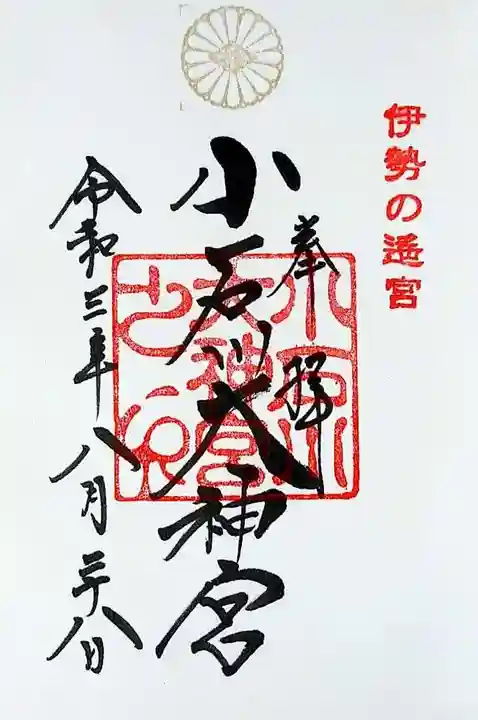 伊勢の遙宮
奉拝
小石川大神宮
令和三年八月二十八日
小石川
大神宮
之印